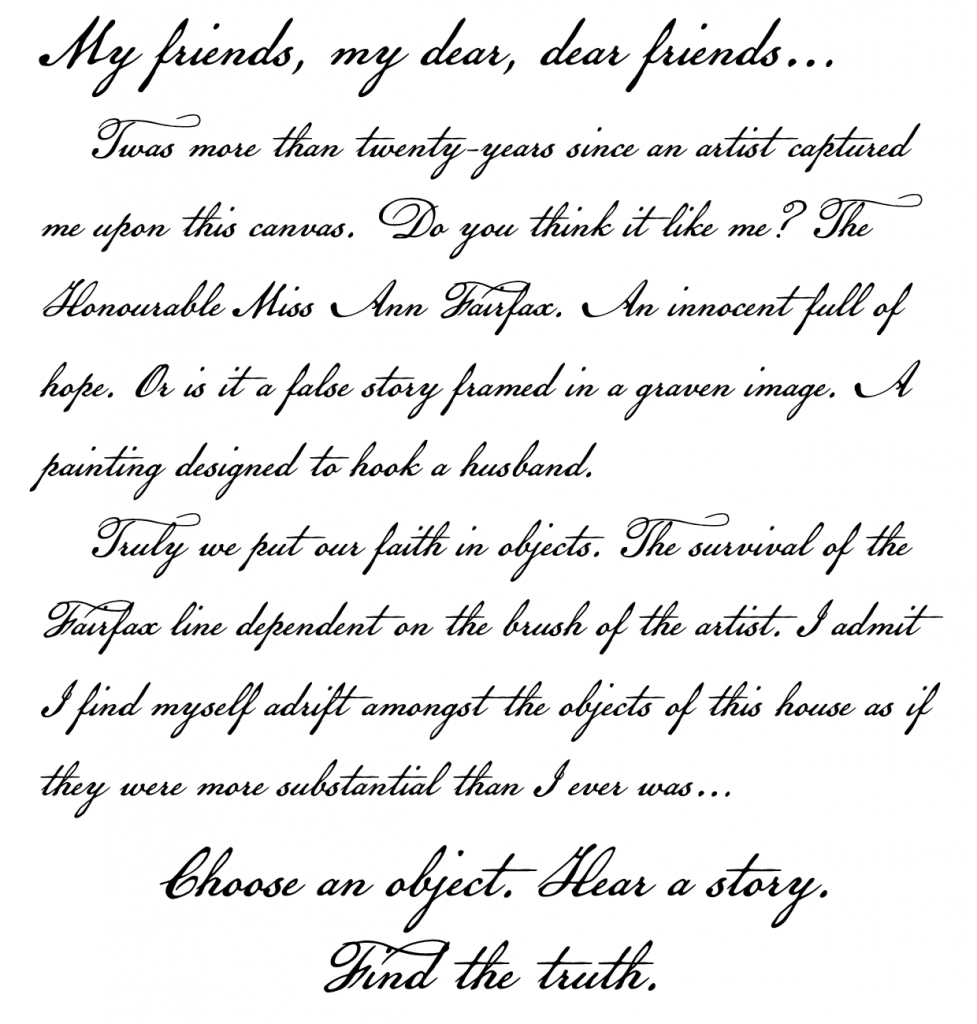 My friends, my dear, dear friends...
Twas more than twenty-years since an artist captured
me upon this canvas. Do you think it like me? The
Honourable Miss Ann Fairfax. An innocent full of
hope. Or is it a false story framed in a graven image. A
painting designed to hook a husband.
Truly we put our faith in objects. The survival of the
Fairfax line dependent on the brush of the artist. I admit
I find myself adrift amongst the objects of this house as if
they were more substantial than I ever was...
Choose an object. Hear a story.
Find the truth.